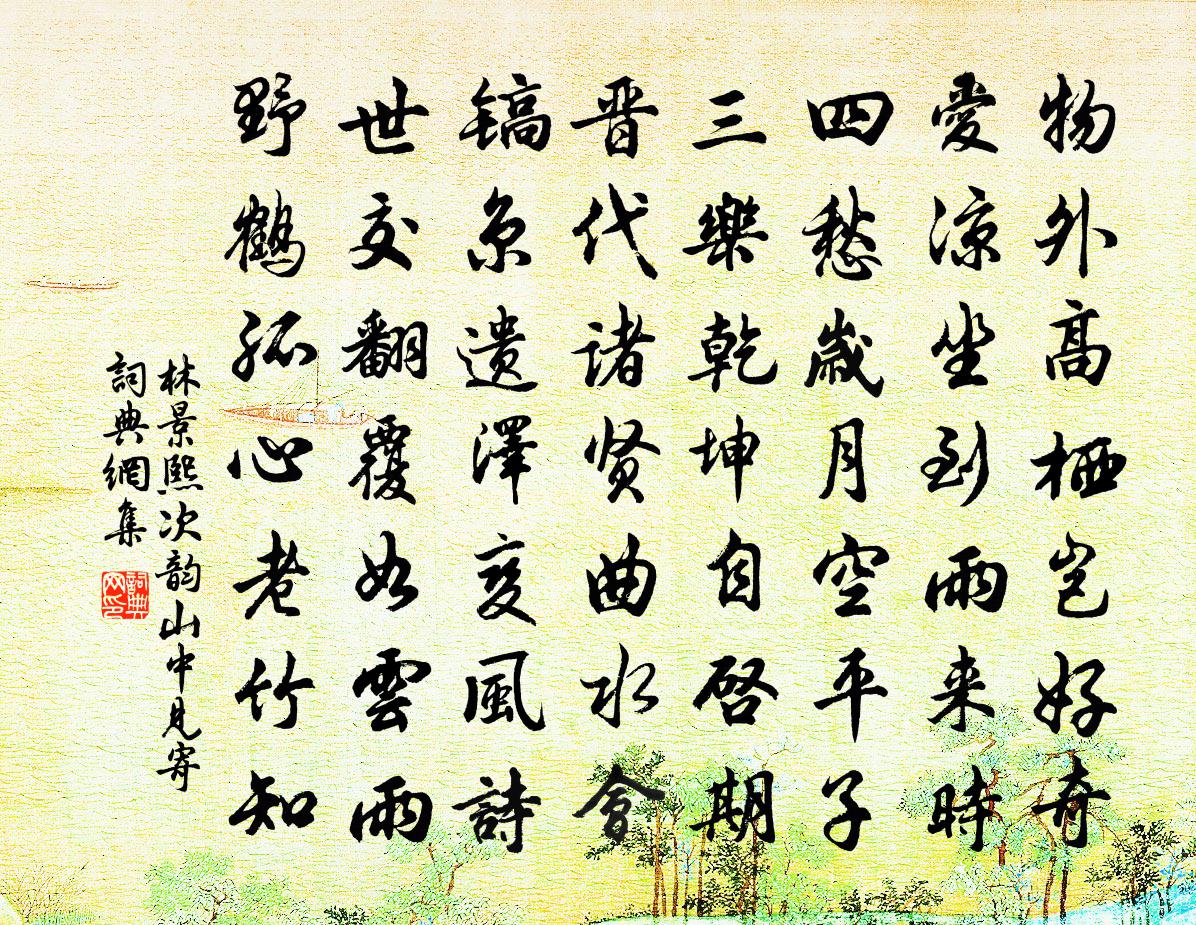 物外高栖岂好奇
愛凉坐到雨来時
四愁歲月空平子
三樂乾坤自啓期
晋代诸贤曲水會
镐京遗澤変風詩
世交翻覆如雲雨
野鶴孤心老竹知
林景熙次韵山中见寄
詞典網集
詞典网印